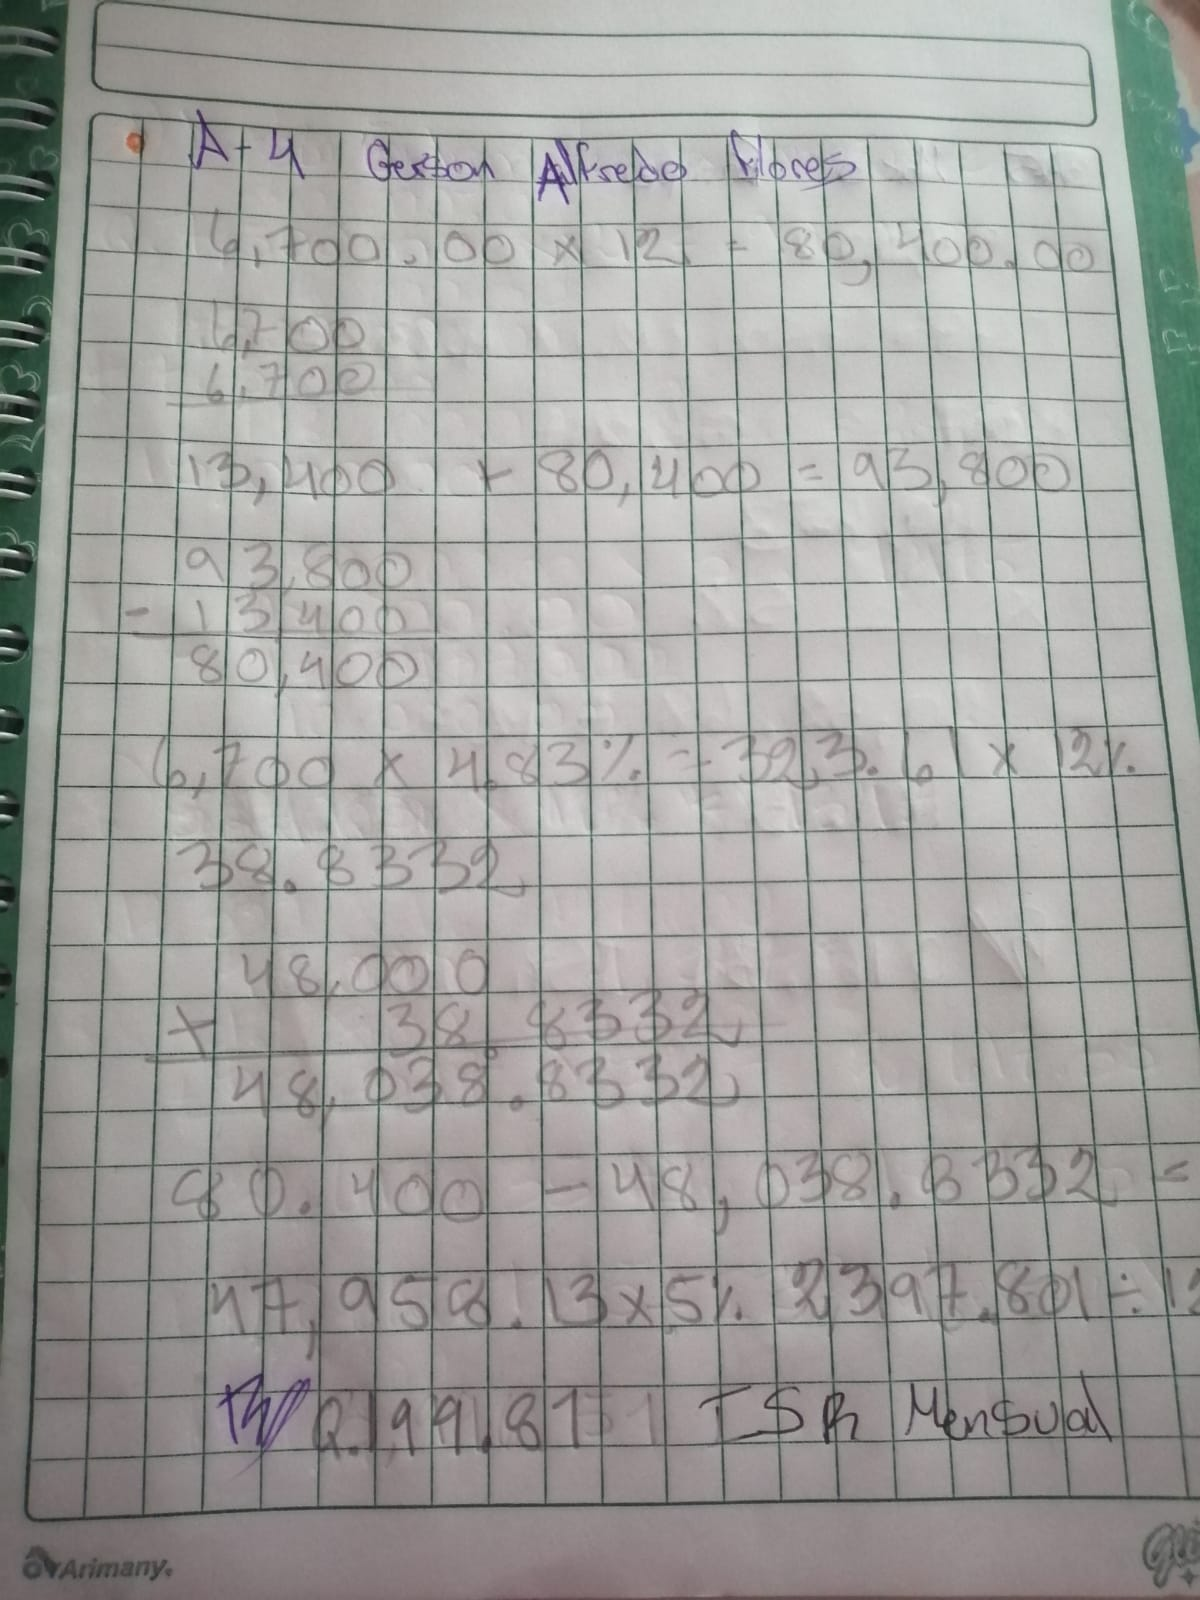 A-4 Gerson Alfredo Flores
6,700.00 x 12 = 80,400.00
6,700
6,700
13,400 + 80,400 = 93,800
93,800
- 13,400
80,400
6,700 x 4.83% = 323.61 x 12%
38.8332
48,000
+ 38.8332
48,038.8332
80.400 - 48,038.8332 =
47,958.13 x 5% 2397.801 ÷ 12
Q.199.81 ISR Mensual
Arimany.